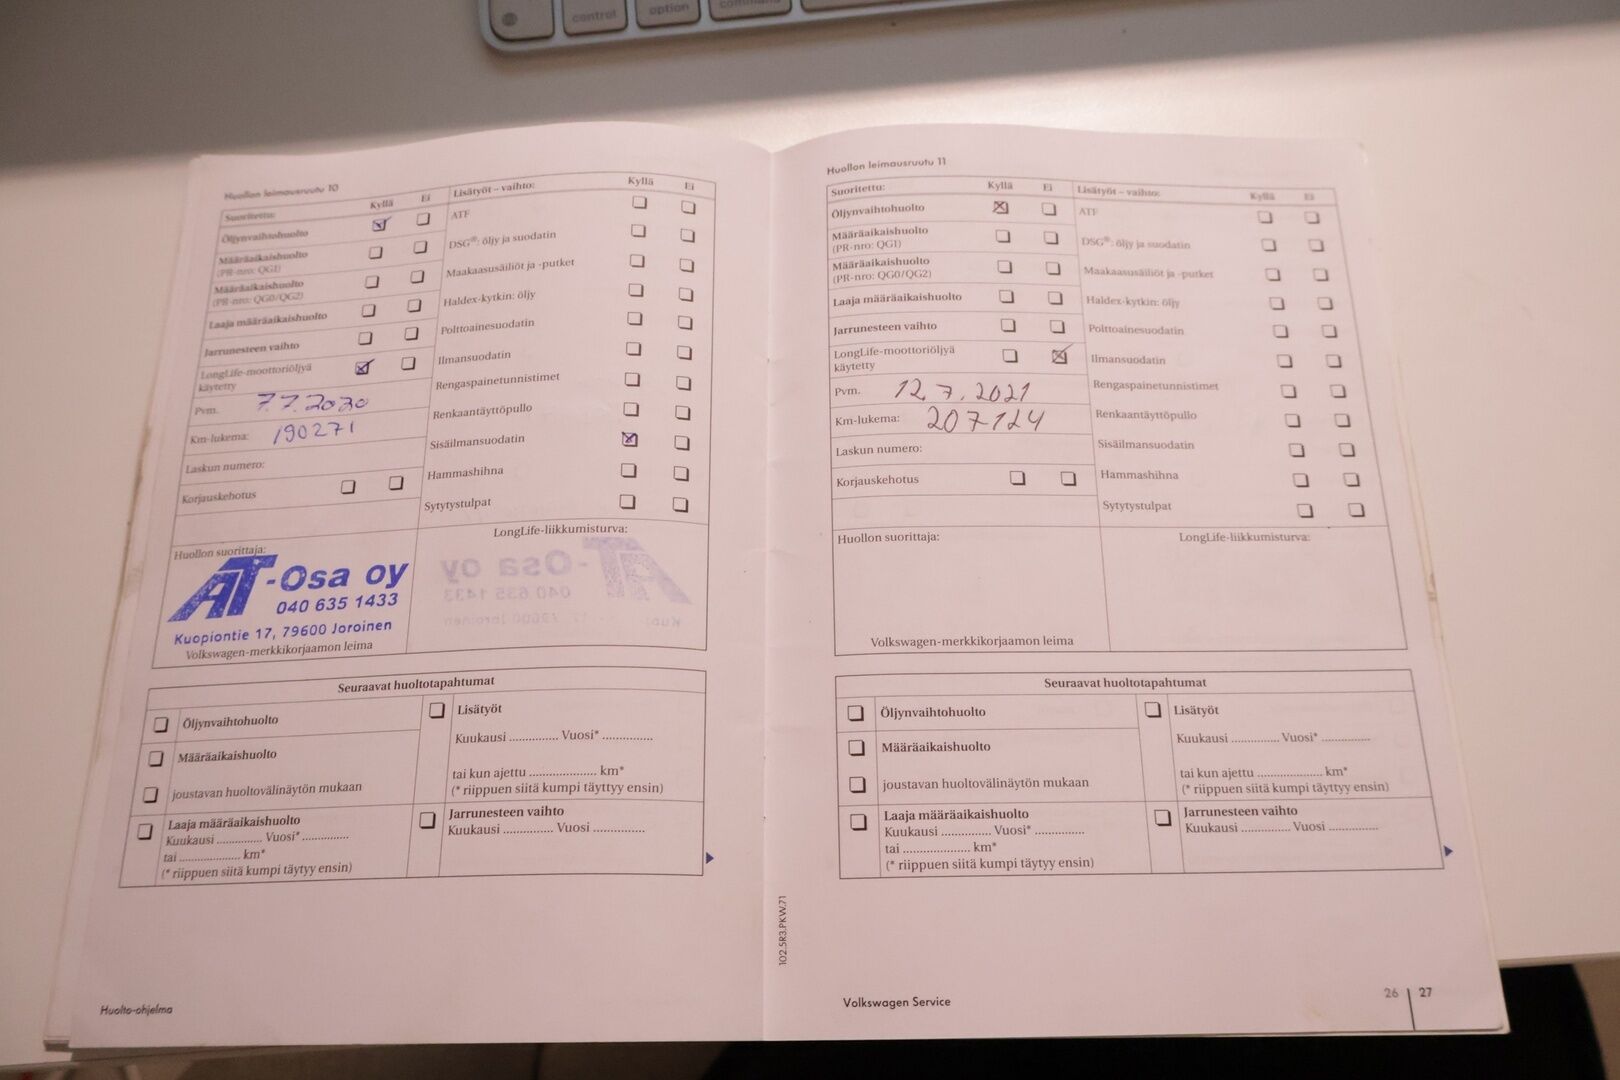 control
option
command
Huollon leimausruutu 10
Suoritettu: Kyllä Ei
Öljynvaihtohuolto
Määräaikaishuolto
(PR-nro: QG1)
Määräaikaishuolto
(PR-nro: QG0/QG2)
Laaja määräaikaishuolto
Jarrunesteen vaihto
LongLife-moottoriöljyä
käytetty
Pvm. 7.7.2020
Km-lukema: 190271
Laskun numero:
Korjauskehotus
Lisätyöt – vaihto: Kyllä Ei
ATF
DSG®: öljy ja suodatin
Maakaasusäiliöt ja -putket
Haldex-kytkin: öljy
Polttoainesuodatin
Ilmansuodatin
Rengaspainetunnistimet
Renkaantäyttöpullo
Sisäilmansuodatin
Hammashihna
Sytytystulpat
Huollon suorittaja:
AT-Osa oy
040 635 1433
Kuopiontie 17, 79600 Joroinen
Volkswagen-merkkikorjaamon leima
LongLife-liikkumisturva:
Seuraavat huoltotapahtumat
Öljynvaihtohuolto
Määräaikaishuolto
joustavan huoltovälinäytön mukaan
Laaja määräaikaishuolto
Kuukausi .............. Vuosi* ..............
tai .................... km*
(* riippuen siitä kumpi täytyy ensin)
Lisätyöt
Kuukausi .............. Vuosi* ..............
tai kun ajettu .................... km*
(* riippuen siitä kumpi täyttyy ensin)
Jarrunesteen vaihto
Kuukausi .............. Vuosi ..............
Huolto-ohjelma
102.5R3.PKW.71
Huollon leimausruutu 11
Suoritettu: Kyllä Ei
Öljynvaihtohuolto
Määräaikaishuolto
(PR-nro: QG1)
Määräaikaishuolto
(PR-nro: QG0/QG2)
Laaja määräaikaishuolto
Jarrunesteen vaihto
LongLife-moottoriöljyä
käytetty
Pvm. 12.7.2021
Km-lukema: 207124
Laskun numero:
Korjauskehotus
Lisätyöt – vaihto: Kyllä Ei
ATF
DSG®: öljy ja suodatin
Maakaasusäiliöt ja -putket
Haldex-kytkin: öljy
Polttoainesuodatin
Ilmansuodatin
Rengaspainetunnistimet
Renkaantäyttöpullo
Sisäilmansuodatin
Hammashihna
Sytytystulpat
Huollon suorittaja:
Volkswagen-merkkikorjaamon leima
LongLife-liikkumisturva:
Seuraavat huoltotapahtumat
Öljynvaihtohuolto
Määräaikaishuolto
joustavan huoltovälinäytön mukaan
Laaja määräaikaishuolto
Kuukausi .............. Vuosi* ..............
tai .................... km*
(* riippuen siitä kumpi täytyy ensin)
Lisätyöt
Kuukausi .............. Vuosi* ..............
tai kun ajettu .................... km*
(* riippuen siitä kumpi täyttyy ensin)
Jarrunesteen vaihto
Kuukausi .............. Vuosi ..............
Volkswagen Service
26 27